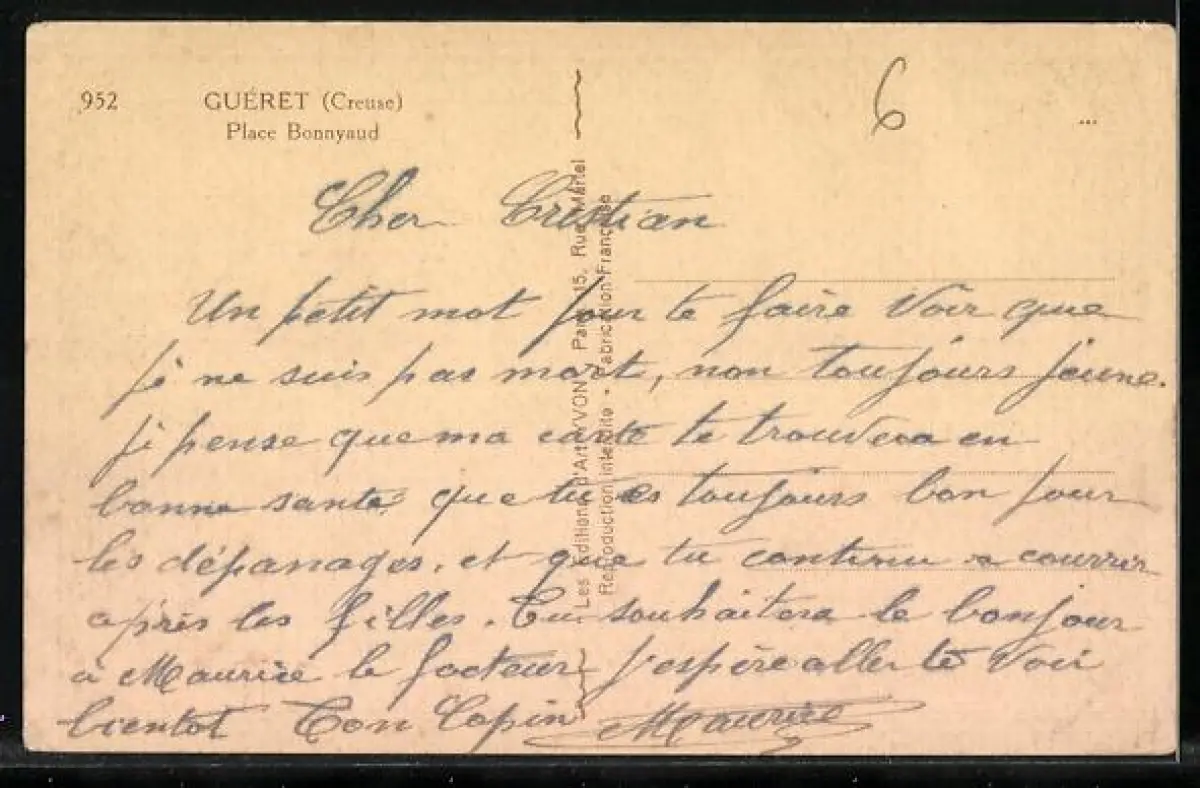 952
GUÉRET (Creuse)
Place Bonnyaud
6
...
Les Editions d'Art YVON, Paris, 15, Rue Martel
Reproduction interdite • Fabrication Française
Cher Cristian
Un petit mot pour te faire voir que
je ne suis pas mort, non toujours jeune.
je pense que ma carte te trouvera en
bonne santé, que tu es toujours bon pour
les dépanages, et que tu continu a courrir
après les filles. Tu souhaitera le bonjour
à Maurice le facteur j'espère aller te voir
bientot Ton Copin Maurice